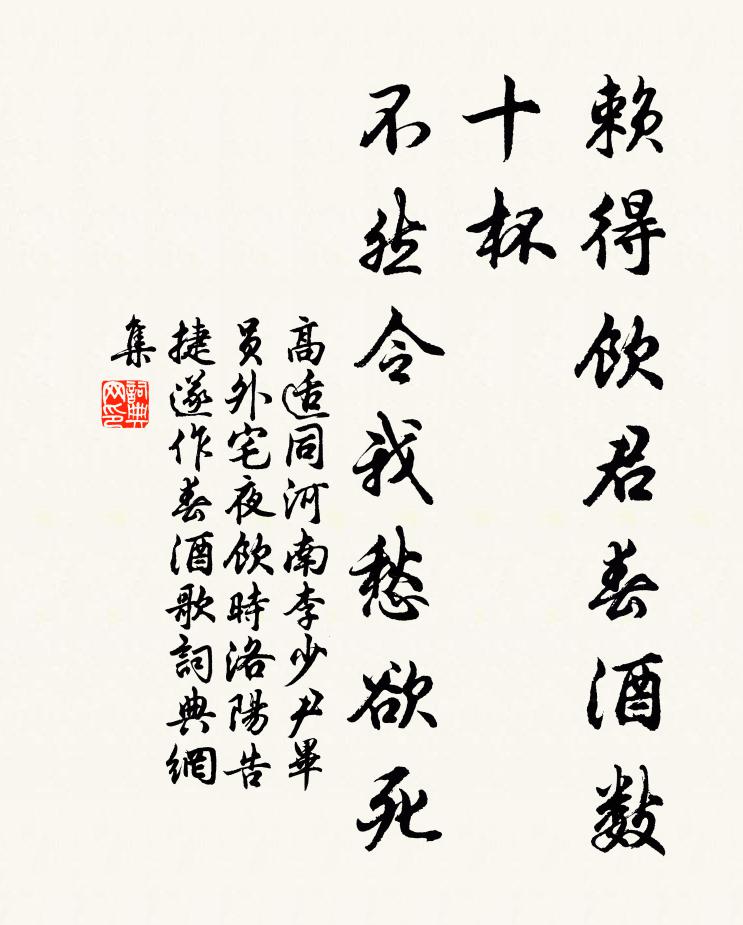 賴得飲君春酒數
十杯
不然令我愁欲死
高適同河南李少尹畢
員外宅夜飲時洛陽告
捷遂作春酒歌詞典網
集
詞典網印